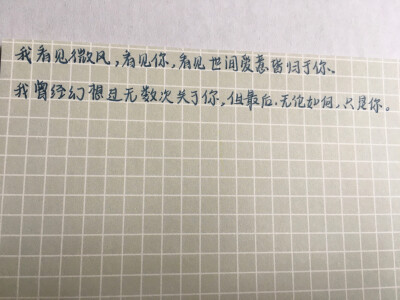 我看见微风,看见你,看见世间爱意皆归于你。
我曾经幻想过无数次关于你,但最后.无论如何,只是你。